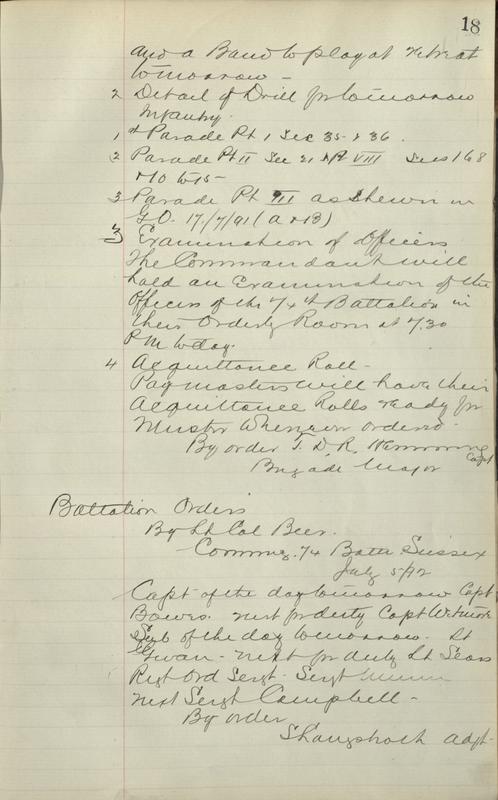 18
and a Band to play at retreat
tomorrow -
2 Detail of Drill for tomorrow
Infantry.
1st Parade Pt 1 Sec 35 & 36.
2 Parade Pt II Sec 21 & Pt VIII Secs 168
& 10 to 15 -
3 Parade Pt III as shewn in
G.O. 17/7/91 (A & B)
3 Examination of Officers
The Commandant will
hold an Examination of the
Officers of the 74th Battalion in
their Orderly Room at 7.30
P.M. today.
4 Acquittance Roll -
Paymasters will have their
Acquittance Rolls ready for
Muster whenever ordered -
By order T. D. R. Hemming
Capt
Brigade Major
Battalion Orders
By Lt Col Beer.
Commg. 74 Battn Sussex
July 5/92
Capt of the day tomorrow Capt
next for duty Capt
Sub of the day tomorrow. Lt
- next for duty Lt Sears
Regt Ord Sergt - Sergt
next Sergt Campbell -
By order
Adjt -